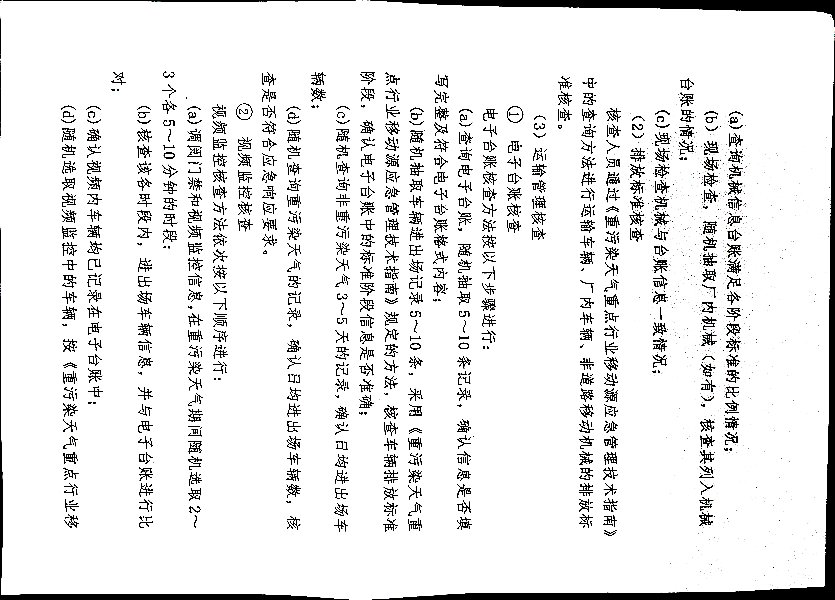 (a)查询机械信息台账满足各阶段标准的比例情况；
(b)现场检查，随机抽取厂内机械（如有），核查其列入机械
台账的情况；
(c)现场检查机械与台账信息一致情况。
（2）排放标准核查
核查人员通过《重污染天气重点行业移动源应急管理技术指南》
中的查询方法进行运输车辆、厂内车辆、非道路移动机械的排放标
准核查。
（3）运输管理核查
① 电子台账核查
电子台账核查方法按以下步骤进行：
(a)查询电子台账，随机抽取5～10条记录，确认信息是否填
写完整及符合电子台账格式内容；
(b)随机抽取车辆进出场记录5～10条，采用《重污染天气重
点行业移动源应急管理技术指南》规定的方法，核查车辆排放标准
阶段，确认电子台账中的标准阶段信息是否准确；
(c)随机查询非重污染天气3～5天的记录，确认日均进出场车
辆数；
(d)随机查询重污染天气的记录，确认日均进出场车辆数，核
查是否符合应急响应要求。
② 视频监控核查
视频监控核查方法依次按以下顺序进行：
(a)调阅门禁和视频监控信息，在重污染天气期间随机选取2～
3个各5～10分钟的时段；
(b)核查该各时段内，进出场车辆信息，并与电子台账进行比
对；
(c)确认视频内车辆均已记录在电子台账中；
(d)随机选取视频监控中的车辆，按《重污染天气重点行业移